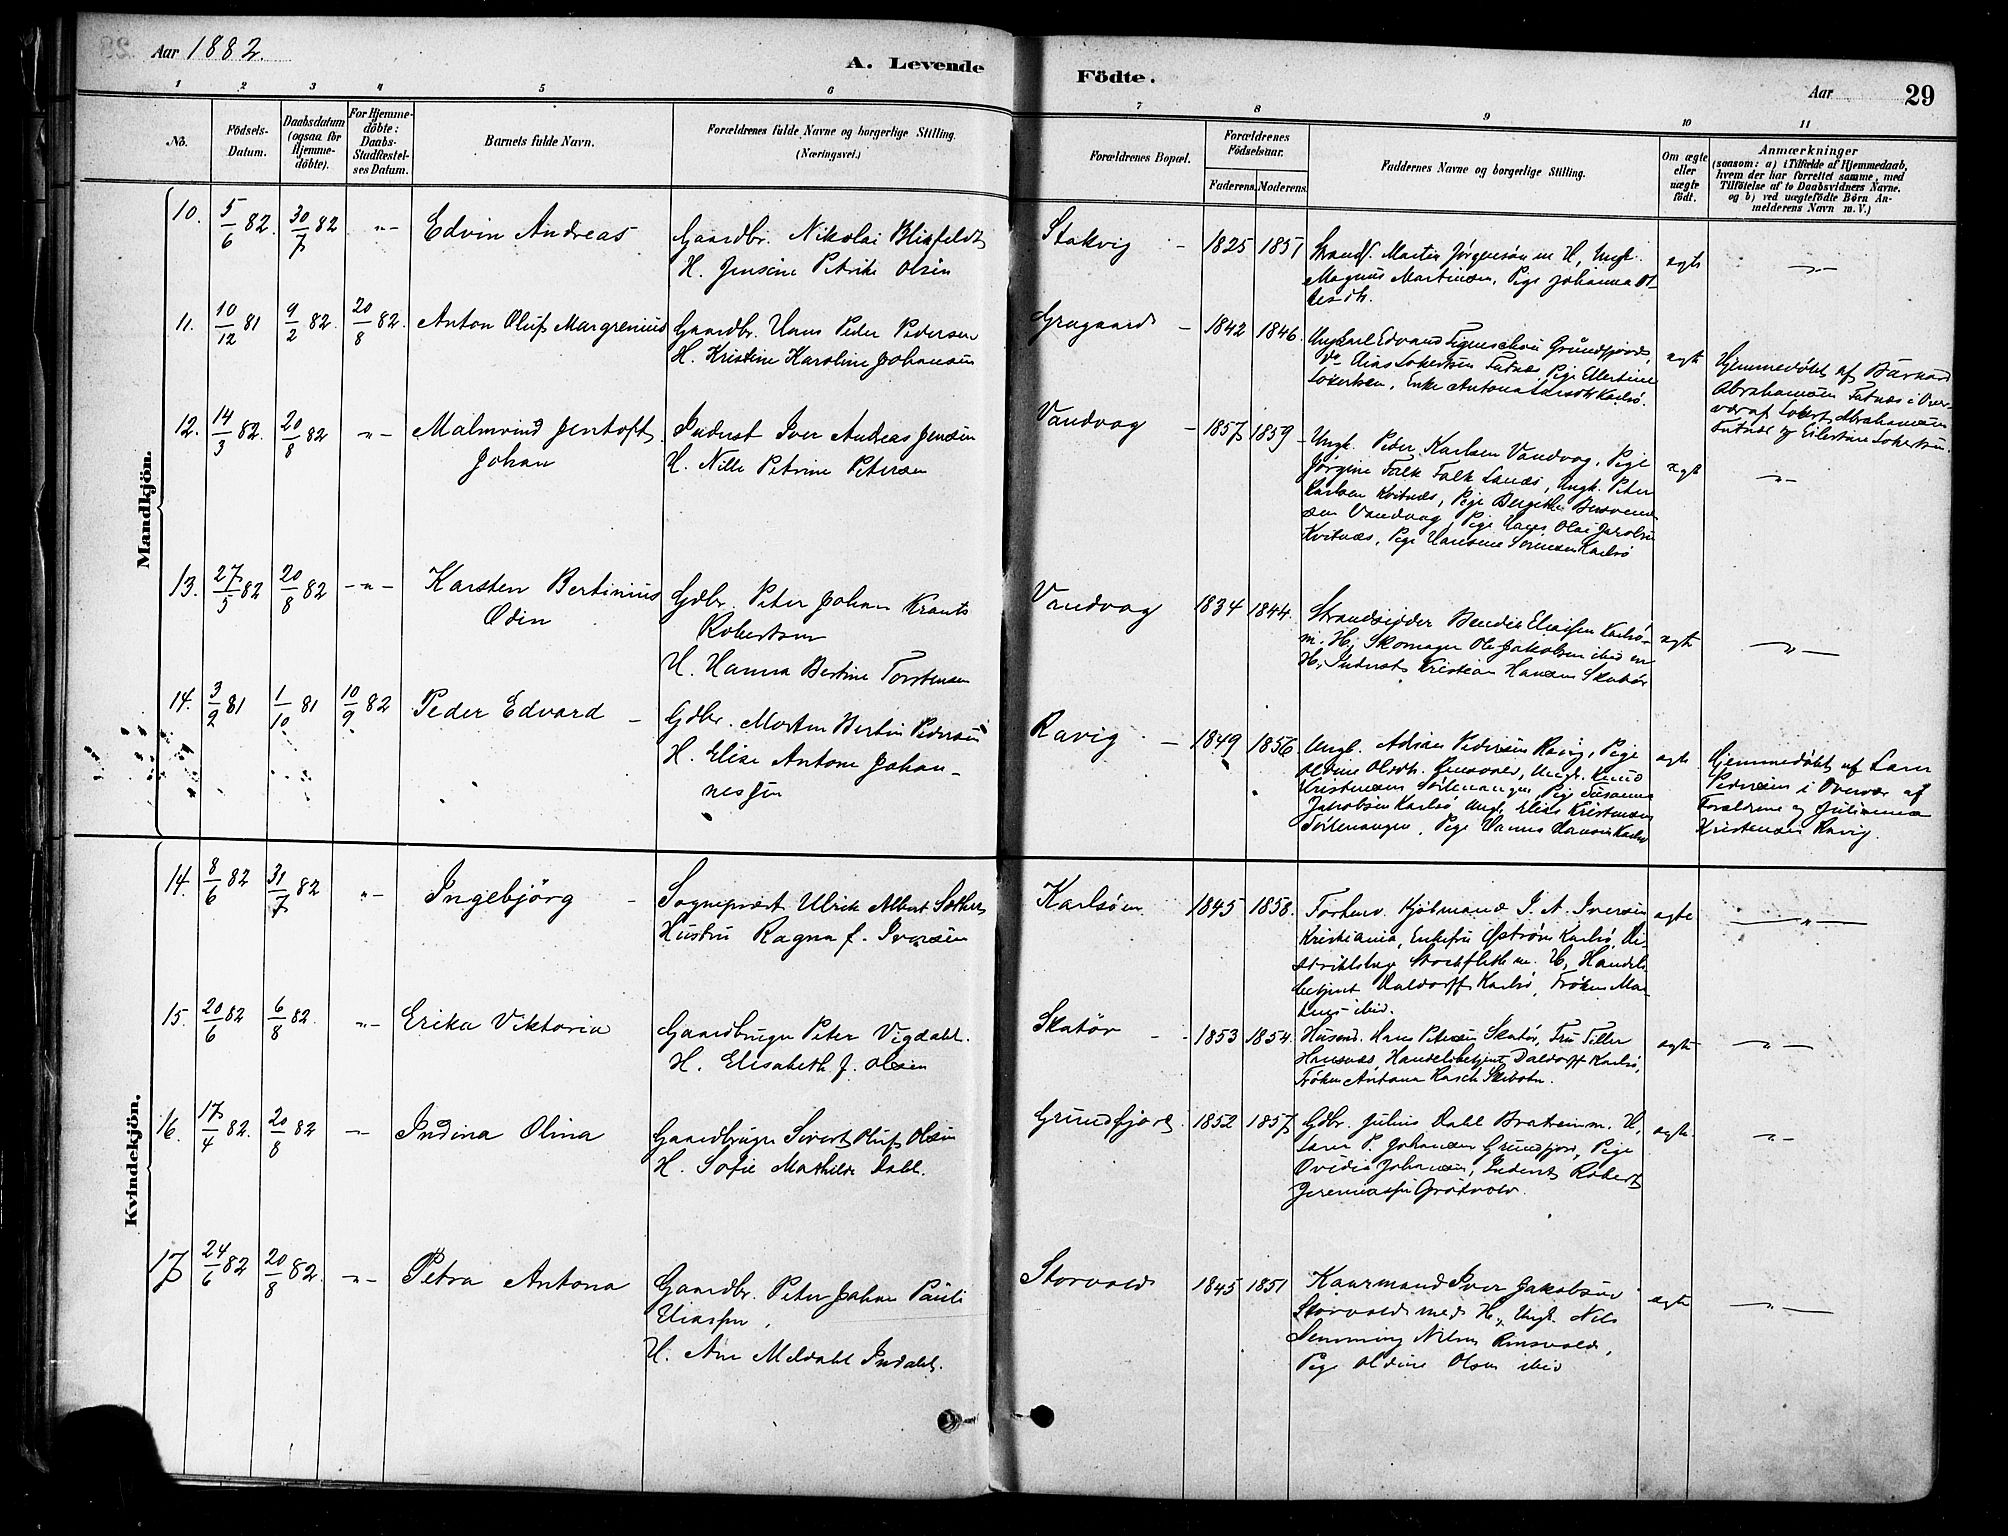 Aar 1882.
A. Levende Födte.
Aar
29
1 2 3 4 5 6 7 8 9 10 11
No.
Födsels-Datum.
Daabsdatum (ogsaa for Hjemmedöbte).
For Hjemmedöbte: Daabs-Stadfæstelses Datum.
Barnets fulde Navn.
Forældrenes fulde Navne og borgerlige Stilling.
(Næringsvei.)
Forældrenes Bopæl.
Forældrenes Födselsaar.
Faderens. Moderens.
Faddernes Navne og borgerlige Stilling.
Om ægte eller uægte födt.
Anmærkninger
(saasom: a) i Tilfælde af Hjemmedaab,
hvem der har forrettet samme, med
Tilföielse af to Daabsvidners Navne.
og b) ved uægtefödte Børn Anmelderens Navn m. V.)
Mandkjön.
10. 5/6 82. 30/7 82 -"- Edvin Andreas
Gaardbr. Nikolai Blixfeldt
H. Jensine Petrike Olsen
Stakvig - 1825 1851
Strands. Martin Jörgensön m H, Ungk.
Magnus Martinsen, Pige Johanna Ol-
ægte -"-
11. 10/12 81 9/2 82. 20/8 82. Anton Oluf Margrenius
Gaardbr. Hans Peder Pedersen
H. Kristine Karoline Johansen
Graagaard - 1842 1846.
Ungkarl Edvard Figenschou Grundfjord,
do Elias Lokertsen Fatnæs, Pige Ellertine
Lokertsen, Enke Antona Larsdt Karlsö.
ægte
Hjemmedöbt af Barnard
Abrahamsen Fatnæs i Over-
vær af Lokert Abrahamsen
12. 14/3 82. 20/8 82 -"- Malmvind Jentoft
Johan
Inderst Iver Andreas Jensen
H. Nille Petrine Petersen
Vandvag - 1857 1859
Ungk. Peder Karlsen Vandvag, Pige
Jörgine Falk Falk Sanæs, Ungk. Peter
Karlsen Kvitnæs, Pige Bergithe
Vandvag, Pige Hans Olai Jakobsen
Kvitnæs, Pige Hansine Karlsö
ægte -"-
13. 27/5 82 20/8 82 -"- Karsten Bertinius
Odin
Gdbr. Peter Johan Krants
Robertsen
H. Hanna Bertine Torstensen
Vandvag 1834 1844.
Strandsidder Bendix Eliassen Karlsö
m. H, Skomager Ole Jakobsen ibid m
H, Inderst Kristian Hansen Skatör
ægte -"-
14. 3/2 81 1/10 81 10/9 82 Peder Edvard -
Gdbr. Morten Bertin Pedersen
H. Elise Antone Johan-
nessen
Ravig - 1849 1856
Ungk. Adrian Pedersen Ravig, Pige
Oldine Olsdt. Ungk. Knud
Kristensen Sörlenangen, Pige Susanna
Jakobsen Karlsö, Ungk. Elias Kristensen
Sörlenangen, Pige Hanna Hansen Karlsö
ægte
Hjemmedöbt af Lars
Pedersen i Overvær af
Forældrene og Julianna
Kristensen Ravig.
Kvindekjön.
14. 8/6 82 31/7 82 -"- Ingebjörg -
Sogneprest Ulrik Albert
Hustru Ragna f. Iversen
Karlsöen 1845 1858.
Forhenv. Kjöbmand I. A. Iversen
Kristiania, Enkefru Karlsö, Di-
striktslæge Stockfleth m. H, Handels-
betjent Daldorff Karlsö, Fröken
ibid.
ægte -"-
15. 20/6 82 6/8 82. -"- Erika Viktoria
Gaardbruger Peter Vigdahl.
H. Elisabeth f. Olsen
Skatör - 1853 1854.
Husmd. Hans Petersen Skatör, Fru Tiller
Hansnæs, Handelsbetjent Daldorff Karlsö,
Fröken Antona Rasch Skibotn.
ægte -"-
16. 17/4 82. 20/8 82 -"- Indina Olina
Gaardbruger Sivert Oluf Olsen
H. Sofie Mathilde Dahl.
Grundfjord 1852 1857
Gdbr. Julius Dahl Bratrein m. H,
P. Johansen Grundfjord, Pige
Ovidia Johansen, Inderst Robert
Jeremiassen Grötvold.
ægte. -"-
17 24/6 82 20/8 82. -"- Petra Antona
Gaardbr. Peter Johan Pauli
Eliassen,
H. Ane Meldahl Indahl.
Storvold 1845 1851
Kaarmand Iver Jakobsen
Storvold med H, Ungk. Nils
Lemming Nilsen
Pige Oldine Olsen ibid
ægte -"-